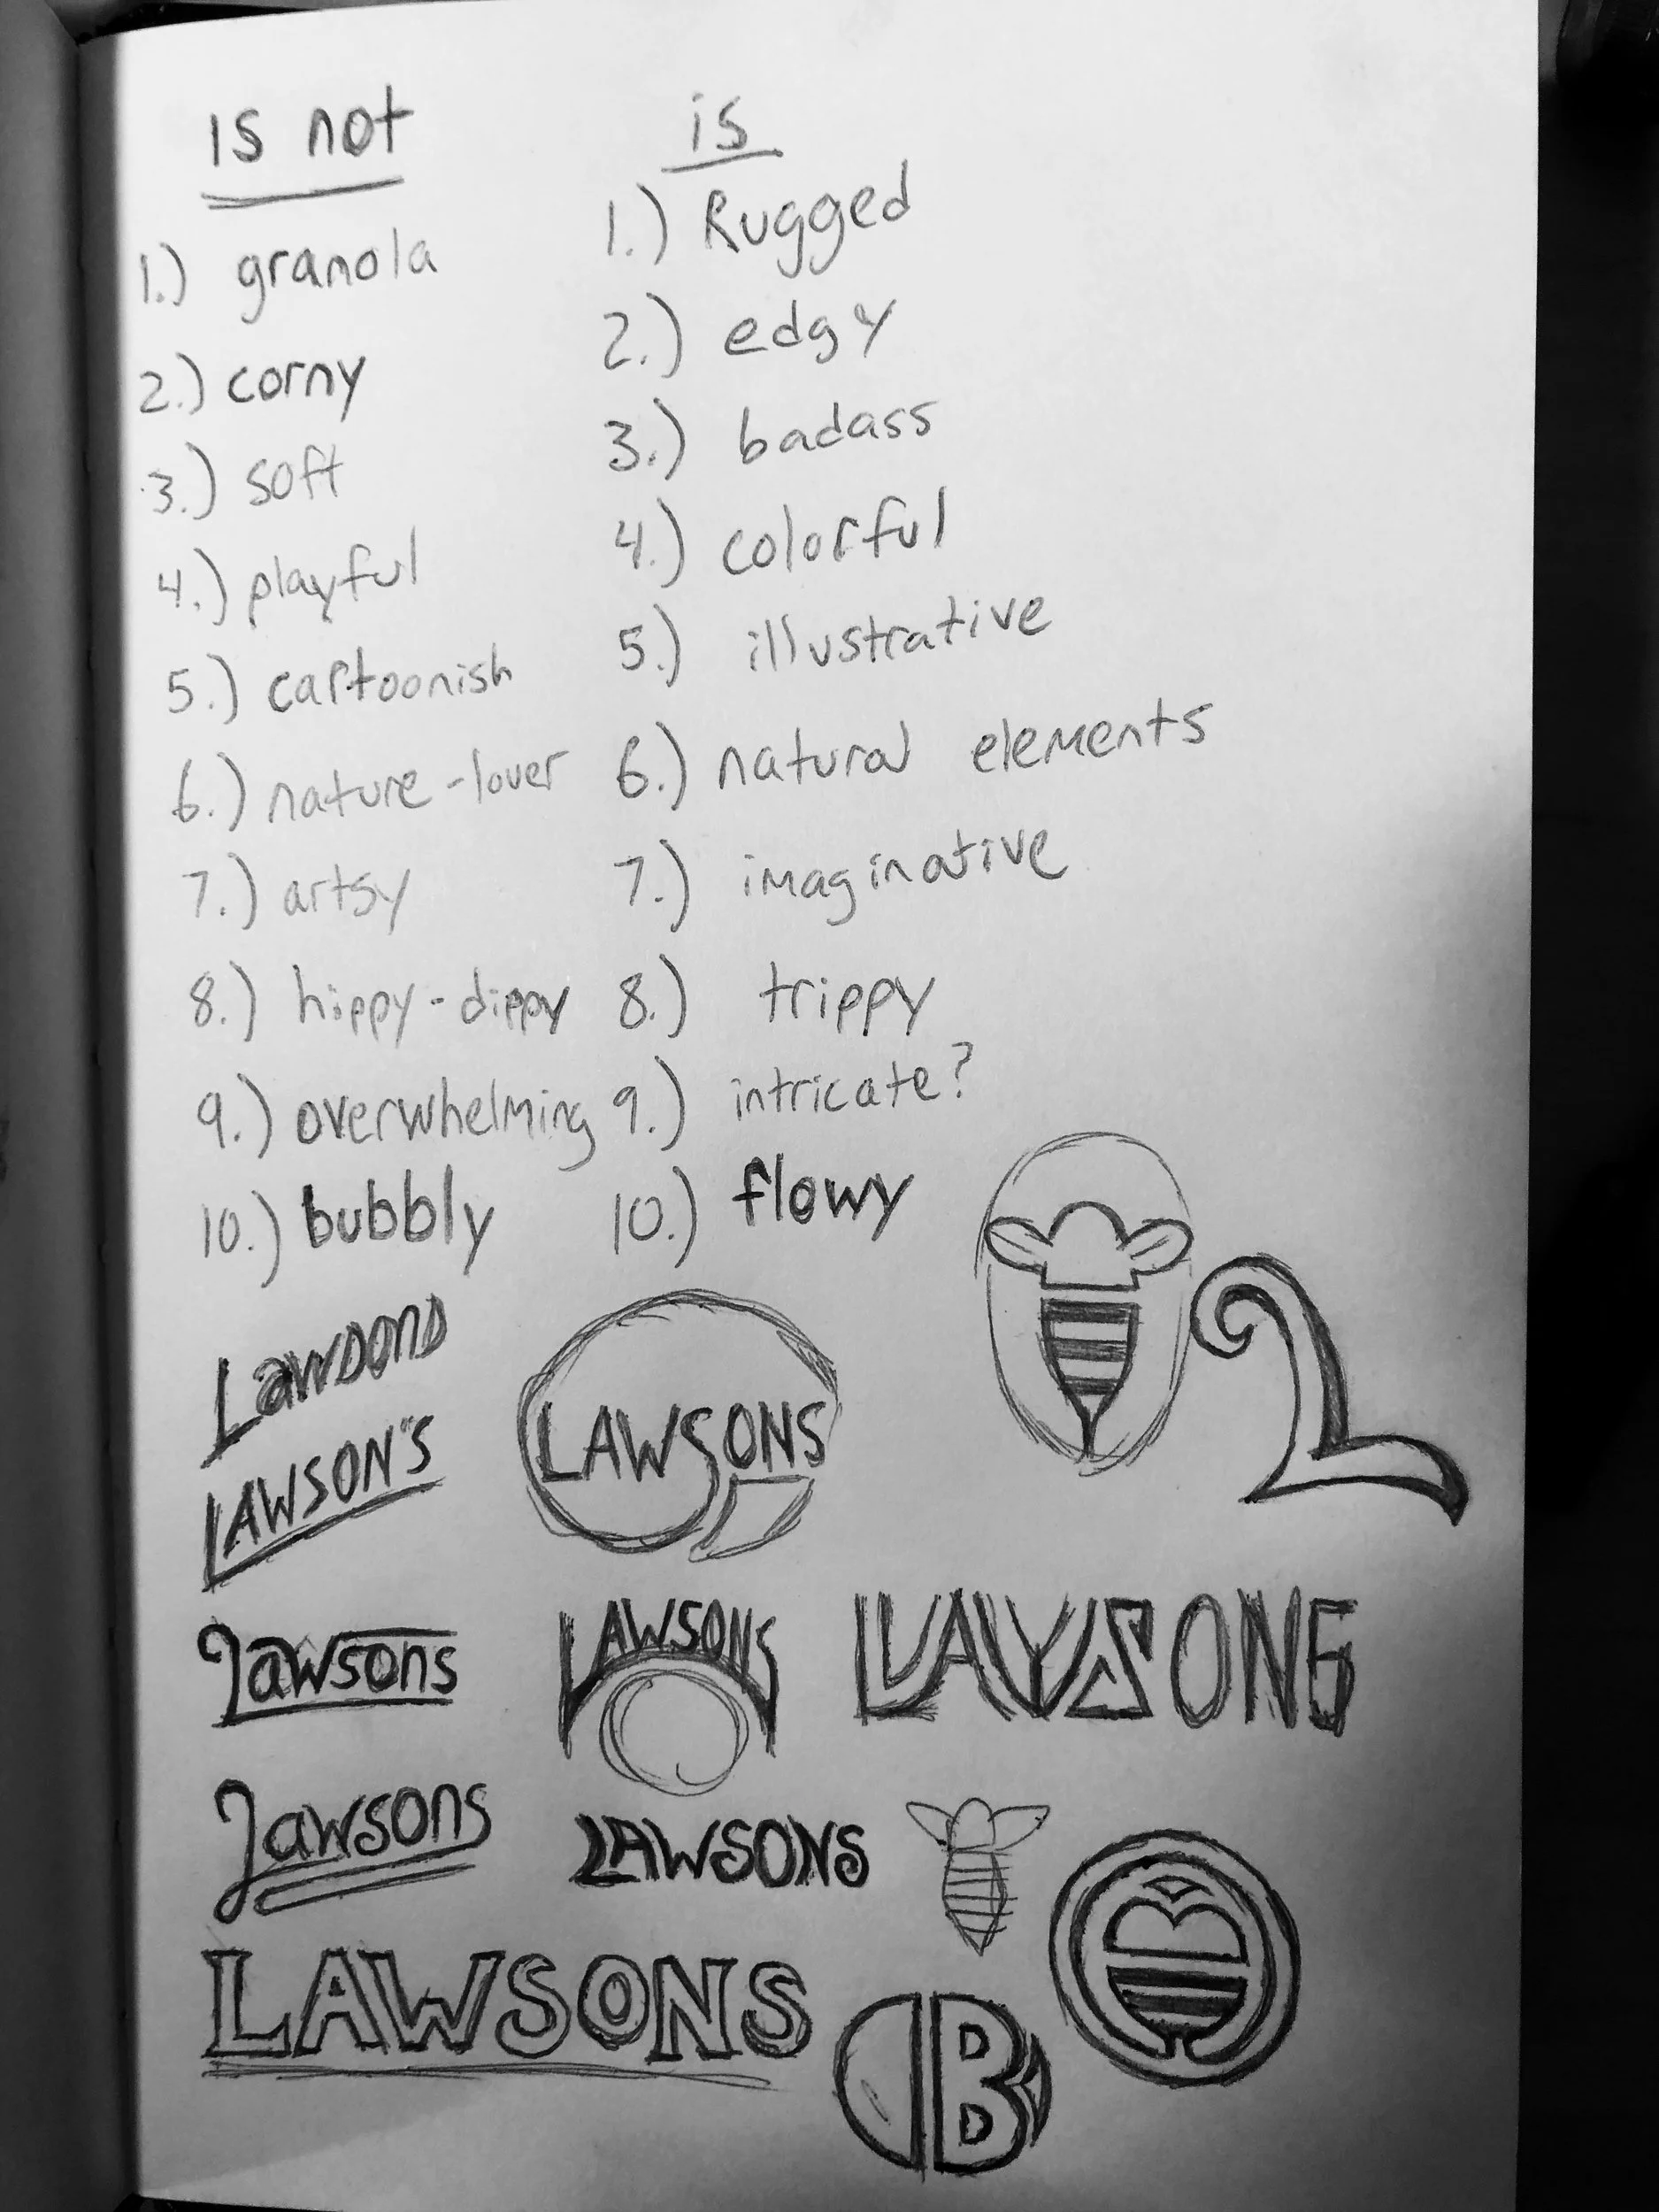 is not
1.) granola
2.) corny
3.) soft
4.) playful
5.) cartoonish
6.) nature-lover
7.) artsy
8.) hippy-dippy
9.) overwhelming
10.) bubbly
is
1.) Rugged
2.) edgy
3.) badass
4.) colorful
5.) illustrative
6.) natural elements
7.) imaginative
8.) trippy
9.) intricate?
10.) flowy
Lawsons
LAWSONS
L
LAWSON'S
Lawsons
LAWSONS
LAWSONS
Lawsons
LAWSONS
LAWSONS
B